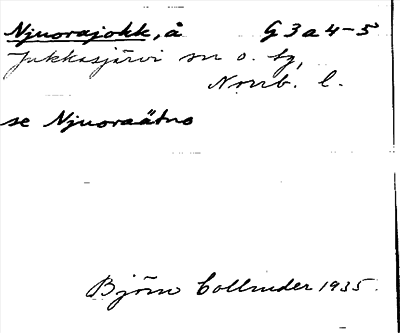 Njuorajokk, å G3a4-5
Jukkasjärvi sn o. tg,
Norrb. l.
se Njuoraätno
Björn Collinder 1935.